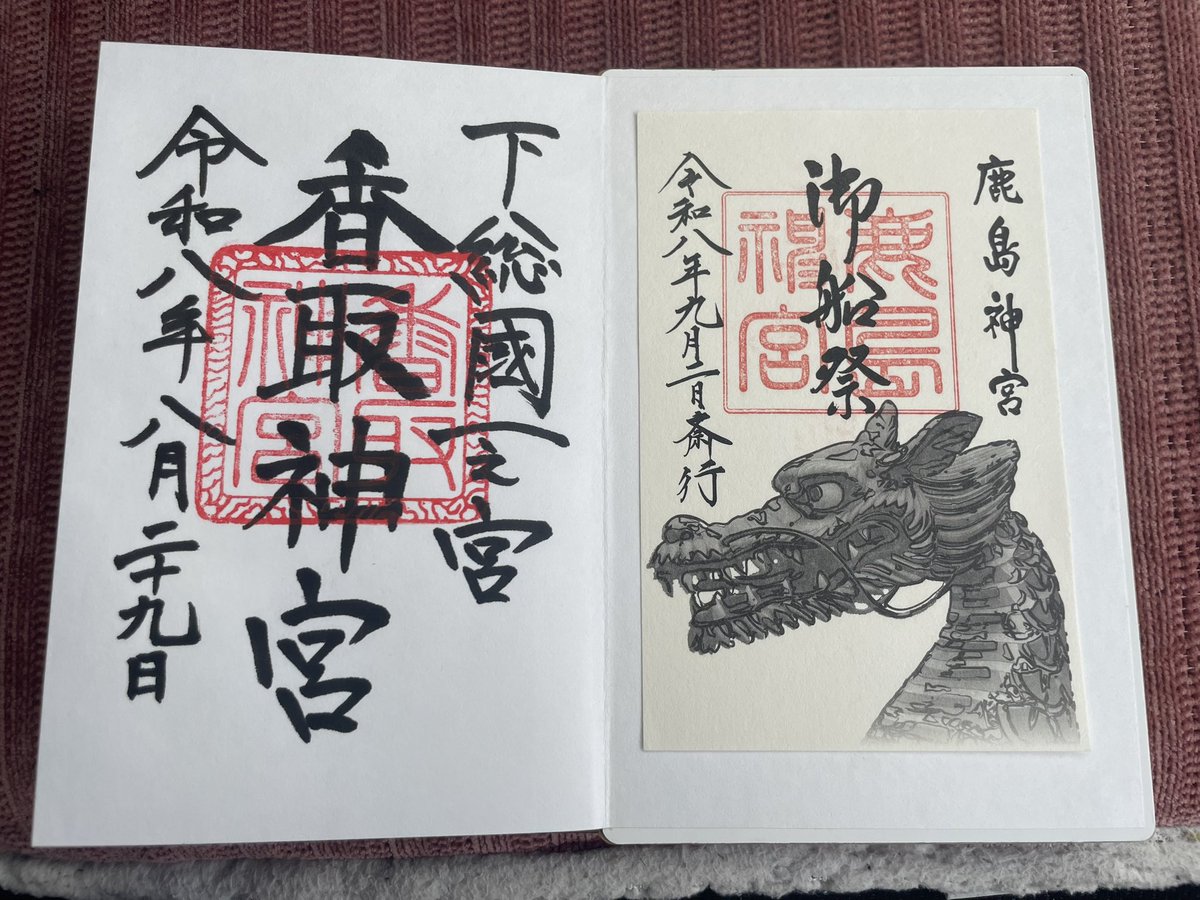 下総國一之宮
香取神宮
香取神宮
令和八年八月二十九日
鹿島神宮
御船祭
鹿島神宮
令和八年九月二日斎行